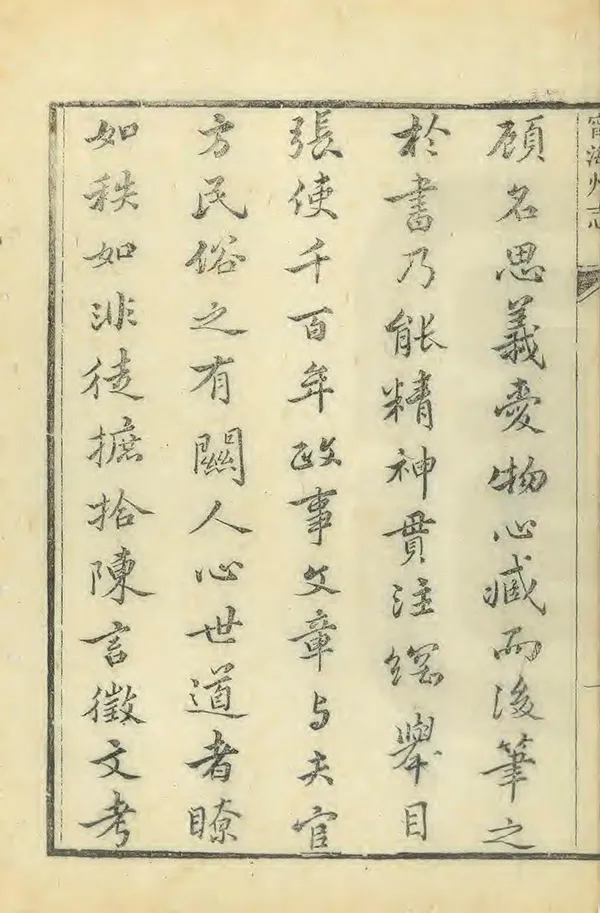 甯海州志
顧名思義愛物心臧而後筆之
於書乃能精神貫注綱舉目
張使千百年政事文章与夫官
方民俗之有關人心世道者瞭
如秩如非徒摭拾陳言徵文考